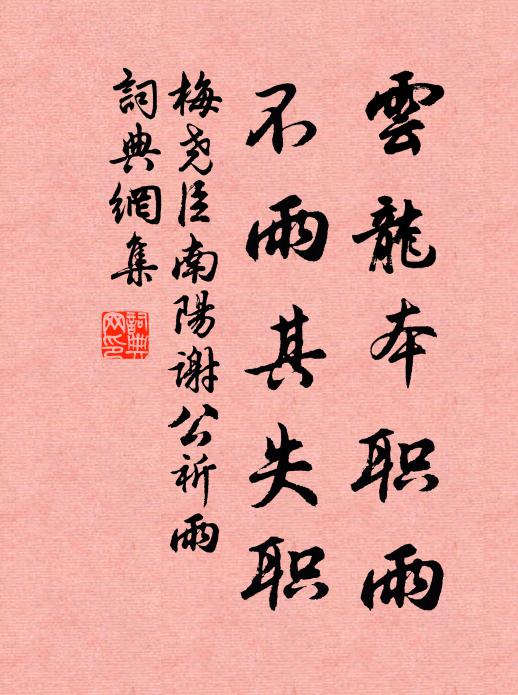 雲龍本职雨
不雨其失职
梅尧臣南陽谢公祈雨
詞典網集
詞典网印